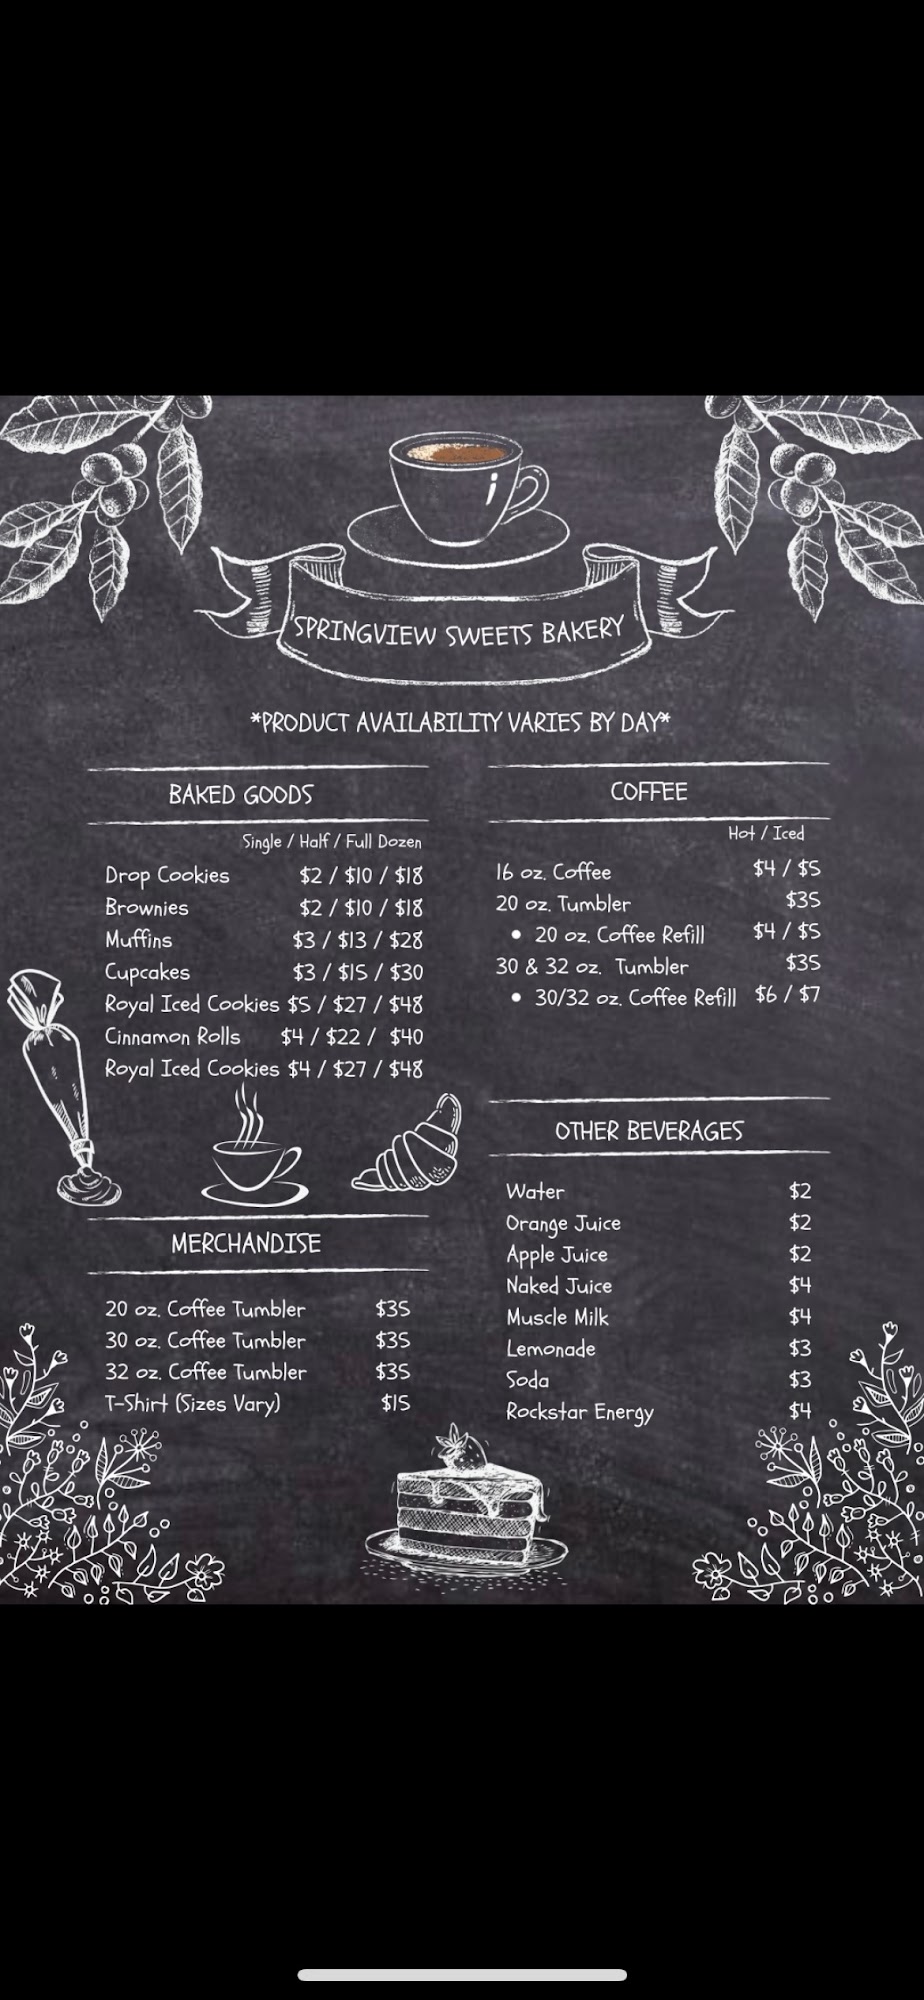 SPRINGVIEW SWEETS BAKERY
*PRODUCT AVAILABILITY VARIES BY DAY*
BAKED GOODS
Single / Half / Full Dozen
Drop Cookies $2 / $10 / $18
Brownies $2 / $10 / $18
Muffins $3 / $13 / $28
Cupcakes $3 / $15 / $30
Royal Iced Cookies $5 / $27 / $48
Cinnamon Rolls $4 / $22 / $40
Royal Iced Cookies $4 / $27 / $48
MERCHANDISE
20 oz. Coffee Tumbler $35
30 oz. Coffee Tumbler $35
32 oz. Coffee Tumbler $35
T-Shirt (Sizes Vary) $15
COFFEE
Hot / Iced
16 oz. Coffee $4 / $5
20 oz. Tumbler $35
• 20 oz. Coffee Refill $4 / $5
30 & 32 oz. Tumbler $35
• 30/32 oz. Coffee Refill $6 / $7
OTHER BEVERAGES
Water $2
Orange Juice $2
Apple Juice $2
Naked Juice $4
Muscle Milk $4
Lemonade $3
Soda $3
Rockstar Energy $4